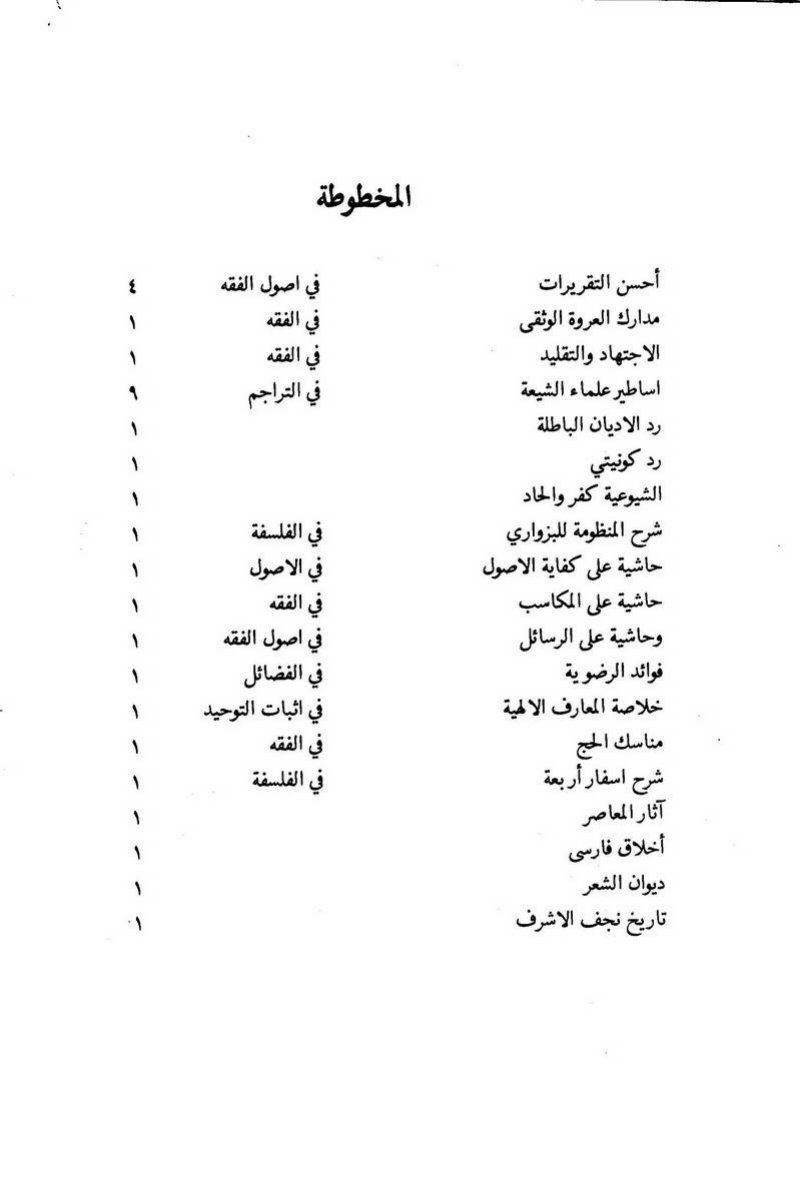 المخطوطة
أحسن التقريرات في اصول الفقه ٤
مدارك العروة الوثقى في الفقه ١
الاجتهاد والتقليد في الفقه ١
اساطير علماء الشيعة في التراجم ٩
رد الاديان الباطلة ١
رد كونيتي ١
الشيوعية كفر والحاد ١
شرح المنظومة للبزواري في الفلسفة ١
حاشية على كفاية الاصول في الاصول ١
حاشية على المكاسب في الفقه ١
وحاشية على الرسائل في اصول الفقه ١
فوائد الرضوية في الفضائل ١
خلاصة المعارف الالهية في اثبات التوحيد ١
مناسك الحج في الفقه ١
شرح اسفار أربعة في الفلسفة ١
آثار المعاصر ١
أخلاق فارسى ١
ديوان الشعر ١
تاريخ نجف الاشرف ١